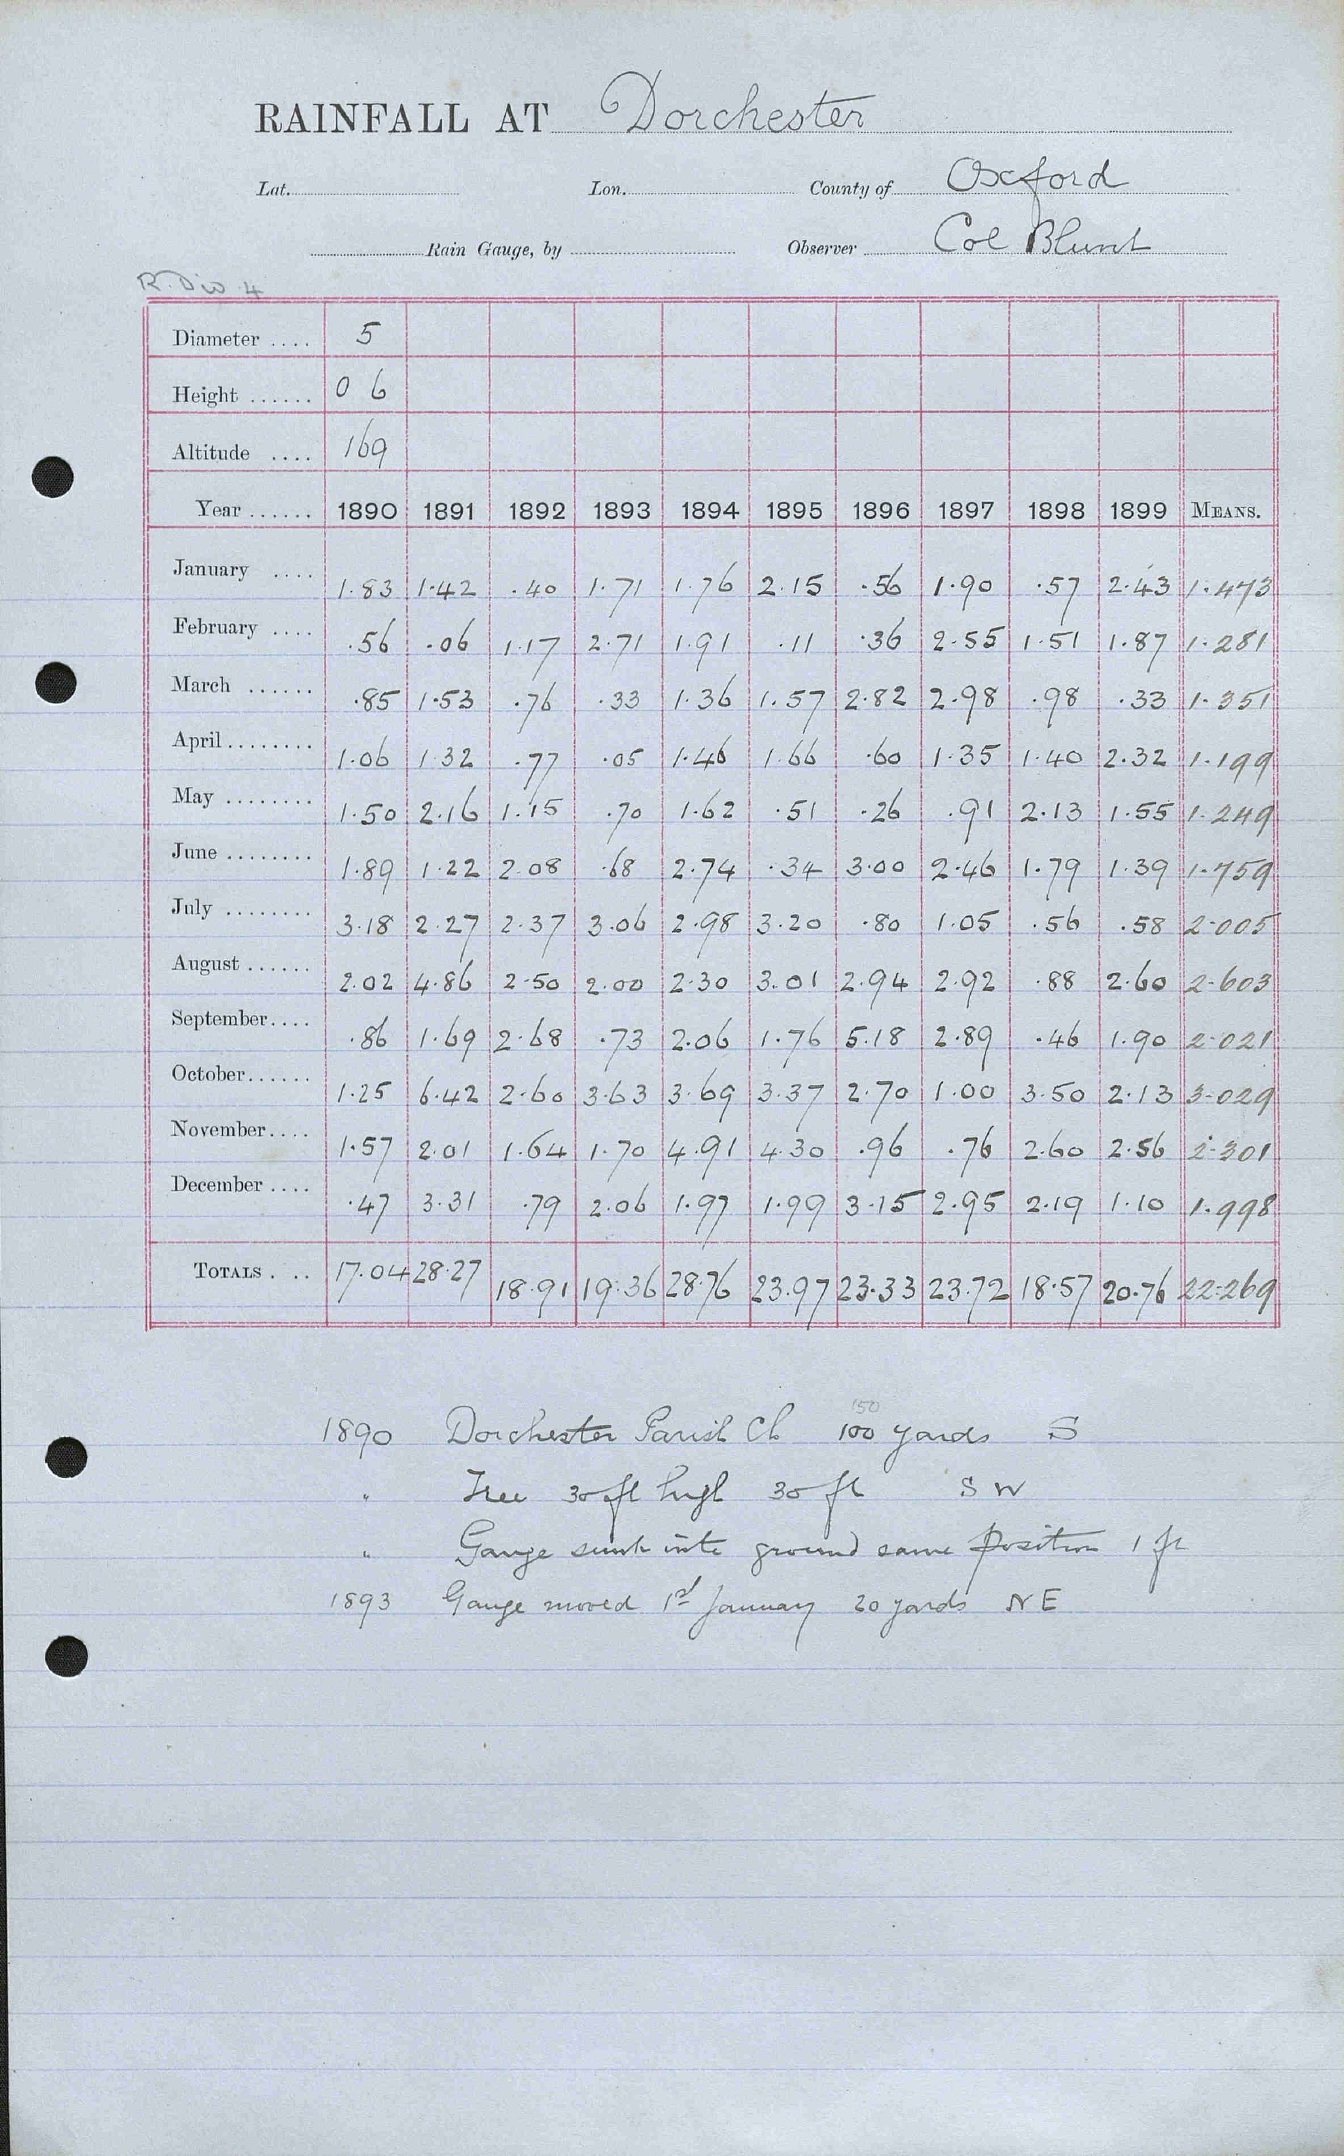 RAINFALL AT Dorchester
Lat. Lon. County of Oxford
Rain Gauge, by Observer Col Blunt
R. Div 4
Diameter .... 5
Height ...... 0 6
Altitude .... 169
Year ...... 1890 1891 1892 1893 1894 1895 1896 1897 1898 1899 MEANS.
January .... 1.83 1.42 .40 1.71 1.76 2.15 .56 1.90 .57 2.43 1.473
February .... .56 .06 1.17 2.71 1.91 .11 .36 2.55 1.51 1.87 1.281
March ...... .85 1.53 .76 .33 1.36 1.57 2.82 2.98 .98 .33 1.351
April ........ 1.06 1.32 .77 .05 1.46 1.66 .60 1.35 1.40 2.32 1.199
May ........ 1.50 2.16 1.15 .70 1.62 .51 .26 .91 2.13 1.55 1.249
June ........ 1.89 1.22 2.08 .68 2.74 .34 3.00 2.46 1.79 1.39 1.759
July ........ 3.18 2.27 2.37 3.06 2.98 3.20 .80 1.05 .56 .58 2.005
August ...... 2.02 4.86 2.50 2.00 2.30 3.01 2.94 2.92 .88 2.60 2.603
September.... .86 1.69 2.68 .73 2.06 1.76 5.18 2.89 .46 1.90 2.021
October...... 1.25 6.42 2.60 3.63 3.69 3.37 2.70 1.00 3.50 2.13 3.029
November.... 1.57 2.01 1.64 1.70 4.91 4.30 .96 .76 2.60 2.56 2.301
December .... .47 3.31 .79 2.06 1.97 1.99 3.15 2.95 2.19 1.10 1.998
TOTALS . .. 17.04 28.27 18.91 19.36 28.76 23.97 23.33 23.72 18.57 20.76 22.269
150
1890 Dorchester Parish Ch 100 yards S
" Tree 30 ft high 30 ft S W
" Gauge sunk into ground same position 1 ft
1893 Gauge moved 1st January 20 yards N E